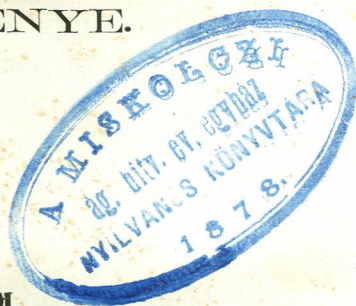 ENYE.
A MISKOLCZI
ág. hitv. ev. egyház
NYILVÁNOS KÖNYVTÁRA
1878.